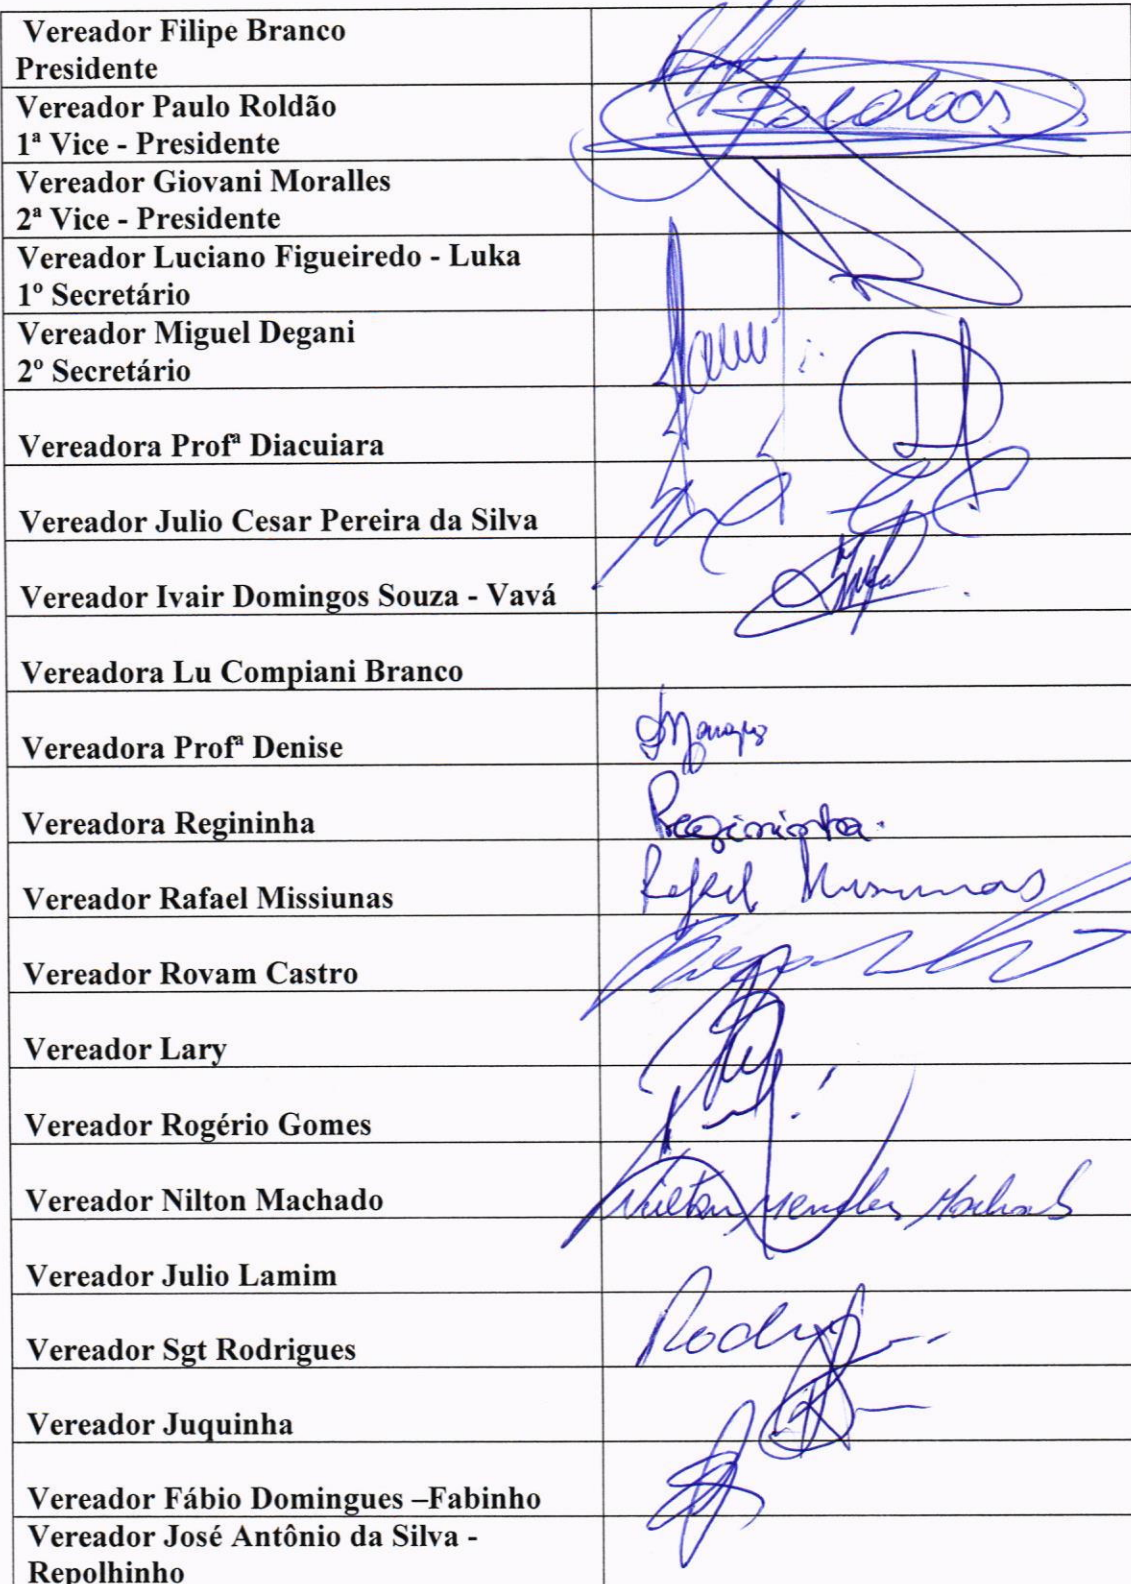 Vereador Filipe Branco
Presidente
Vereador Paulo Roldão
1ª Vice - Presidente
Vereador Giovani Moralles
2ª Vice - Presidente
Vereador Luciano Figueiredo - Luka
1º Secretário
Vereador Miguel Degani
2º Secretário
Vereadora Profª Diacuiara
Vereador Julio Cesar Pereira da Silva
Vereador Ivair Domingos Souza - Vavá
Vereadora Lu Compiani Branco
Vereadora Profª Denise
Vereadora Regininha Regininha
Vereador Rafael Missiunas Rafael Missiunas
Vereador Rovam Castro
Vereador Lary
Vereador Rogério Gomes
Vereador Nilton Machado Nilton Mendes Machado
Vereador Julio Lamim
Vereador Sgt Rodrigues
Vereador Juquinha
Vereador Fábio Domingues –Fabinho
Vereador José Antônio da Silva -
Repolhinho